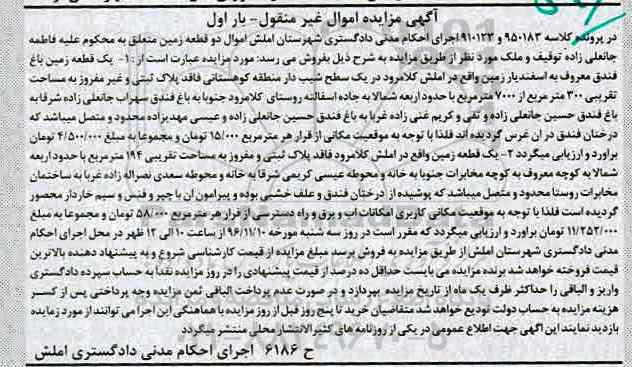 آگهی مزایده اموال غیر منقول- بار اول
در پرونده کلاسه ۹۵۰۱۸۳ و ۹۱۰۱۲۳ اجرای احکام مدنی دادگستری شهرستان املش اموال دو قطعه زمین متعلق به محکوم علیه فاطمه
جانعلی زاده توقیف و ملک مورد نظر از طریق مزایده به شرح ذیل بفروش می رسد: مورد مزایده عبارت است از : ۱- یک قطعه زمین باغ
فندق معروف به اسفندیار زمین واقع در املش کلامرود در یک سطح شیب دار منطقه کوهستانی فاقد پلاک ثبتی و غیر مفروز به مساحت
تقریبی ۳۰۰ متر مربع از ۷۰۰۰ متر مربع با حدود اربعه شمالا به جاده اسفالته روستای کلامرود جنوبا به باغ فندق سهراب جانعلی زاده شرقا به
باغ فندق حسین جانعلی زاده و تقی و کریم غنی زاده غربا به باغ فندق حسین جانعلی زاده و عیسی مهدیزاده محدود و متصل میباشد که
درختان فندق در ان غرس گردیده اند فلذا با توجه به موقعیت مکانی از قرار هر متر مربع ۱۵/۰۰۰ تومان و مجموعا به مبلغ ۴/۵۰۰/۰۰۰ تومان
براورد و ارزیابی میگردد ۲- یک قطعه زمین واقع در املش کلامرود فاقد پلاک ثبتی و مفروز به مساحت تقریبی ۱۹۴ متر مربع با حدود اربعه
شمالا به کوچه معروف به کوچه مخابرات جنوبا به خانه و محوطه عیسی کریمی شرقا به خانه و محوطه سعدی نصراله زاده غربا به ساختمان
مخابرات روستا محدود و متصل میباشد که پوشیده از درختان فندق و علف خشبی بوده و پیرامون ان با چپر و فنس و سیم خاردار محصور
گردیده است فلذا با توجه به موقعیت مکانی کاربری امکانات اب و برق و راه دسترسی از قرار هر متر مربع ۵۸/۰۰۰ تومان و مجموعا به مبلغ
۱۱/۲۵۲/۰۰۰ تومان براورد و ارزیابی میگردد که مقرر است در روز سه شنبه مورخه ۹۶/۱۱/۱۰ از ساعت ۱۰ الی ۱۲ ظهر در محل اجرای احکام
مدنی دادگستری شهرستان املش از طریق مزایده به فروش برسد مبلغ مزایده از قیمت کارشناسی شروع و به پیشنهاد دهنده بالاترین
قیمت فروخته خواهد شد برنده مزایده می بایست حداقل ده درصد از قیمت پیشنهادی را در روز مزایده نقدا به حساب سپرده دادگستری
واریز و الباقی را حداکثر ظرف یک ماه از تاریخ مزایده بپردازد و در صورت عدم پرداخت الباقی ثمن مزایده وجه پرداختی پس از کسر
هزینه مزایده به حساب دولت تودیع خواهد شد متقاضیان خرید تا پنج روز قبل از روز مزایده با هماهنگی این اجرا می توانند از مورد مزایده
بازدید نمایند این آگهی جهت اطلاع عمومی در یکی از روزنامه های کثیرالانتشار محلی منتشر میگردد
ح ۶۱۸۶ اجرای احکام مدنی دادگستری املش